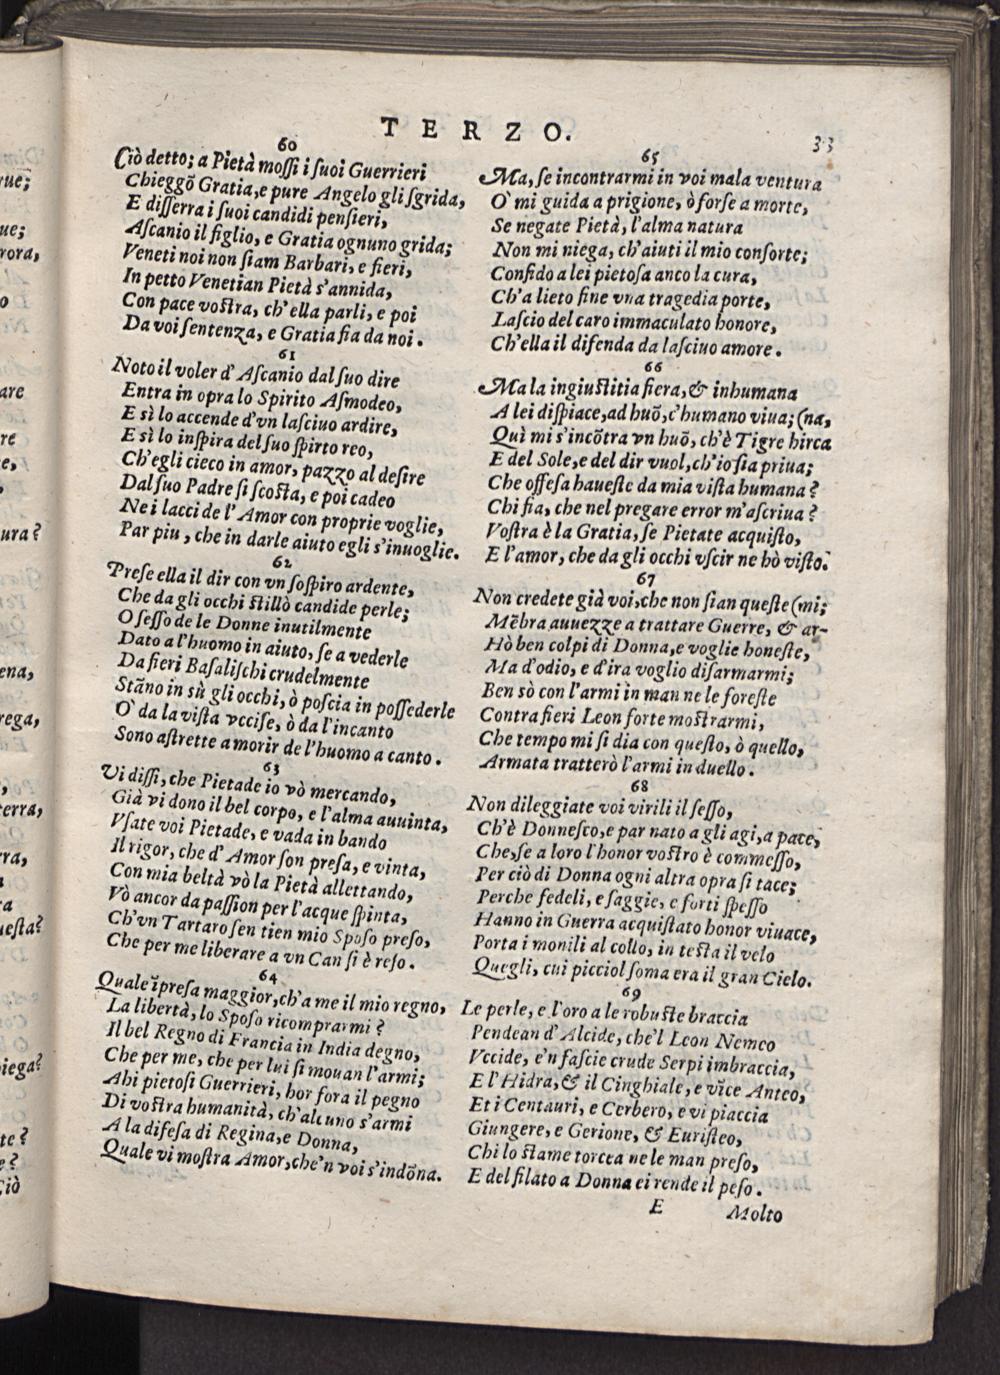 TERZO.
33
60
Ciò detto; a Pietà mossi i suoi Guerrieri
Chieggõ Gratia, e pure Angelo gli sgrida,
E disserra i suoi candidi pensieri,
Ascanio il figlio, e Gratia ognuno grida;
Veneti noi non siam Barbari, e fieri,
In petto Venetian Pietà s'annida,
Con pace vostra, ch'ella parli, e poi
Da voi sentenza, e Gratia fia da noi.
61
Noto il voler d'Ascanio dal suo dire
Entra in opra lo Spirito Asmodeo,
E sì lo accende d'vn lasciuo ardire,
E sì lo inspira del suo spirto reo,
Ch'egli cieco in amor, pazzo al desire
Dal suo Padre si scosta, e poi cadeo
Ne i lacci de l'Amor con proprie voglie,
Par piu, che in darle aiuto egli s'inuoglie.
62
Prese ella il dir con vn sospiro ardente,
Che da gli occhi stillò candide perle;
O sesso de le Donne inutilmente
Dato a l'huomo in aiuto, se a vederle
Da fieri Basalischi crudelmente
Stãno in sù gli occhi, ò poscia in possederle
O' da la vista vccise, ò da l'incanto
Sono astrette a morir de l'huomo a canto.
63
Vi dissi, che Pietade io vò mercando,
Già vi dono il bel corpo, e l'alma auuinta,
Vsate voi Pietade, e vada in bando
Il rigor, che d'Amor son presa, e vinta,
Con mia beltà vò la Pietà allettando,
Vò ancor da passion per l'acque spinta,
Ch'vn Tartaro sen tien mio Sposo preso,
Che per me liberare a vn Can si è reso.
64
Quale ĩpresa maggior, ch'a me il mio regno,
La libertà, lo Sposo ricomprarmi?
Il bel Regno di Francia in India degno,
Che per me, che per lui si mouan l'armi;
Ahi pietosi Guerrieri, hor fora il pegno
Di vostra humanità, ch'alcuno s'armi
A la difesa di Regina, e Donna,
Quale vi mostra Amor, che'n voi s'indõna.
65
Ma, se incontrarmi in voi mala ventura
O' mi guida a prigione, ò forse a morte,
Se negate Pietà, l'alma natura
Non mi niega, ch'aiuti il mio consorte;
Confido a lei pietosa anco la cura,
Ch'a lieto fine vna tragedia porte,
Lascio del caro immaculato honore,
Ch'ella il difenda da lasciuo amore.
66
Ma la ingiustitia fiera, & inhumana
A lei dispiace, ad huõ, c'humano viua; (na,
Quì mi s'incõtra vn huõ, ch'è Tigre hirca
E del Sole, e del dir vuol, ch'io sia priua;
Che offesa haueste da mia vista humana?
Chi fia, che nel pregare error m'ascriua?
Vostra è la Gratia, se Pietate acquisto,
E l'amor, che da gli occhi vscir ne hò visto.
67
Non credete già voi, che non sian queste (mi;
Mẽbra auuezze a trattare Guerre, & ar-
Hò ben colpi di Donna, e voglie honeste,
Ma d'odio, e d'ira voglio disarmarmi;
Ben sò con l'armi in man ne le foreste
Contra fieri Leon forte mostrarmi,
Che tempo mi si dia con questo, ò quello,
Armata tratterò l'armi in duello.
68
Non dileggiate voi virili il sesso,
Ch'è Donnesco, e par nato a gli agi, a pace,
Che, se a loro l'honor vostro è commesso,
Per ciò di Donna ogni altra opra si tace;
Perche fedeli, e saggie, e forti spesso
Hanno in Guerra acquistato honor viuace,
Porta i monili al collo, in testa il velo
Quegli, cui picciol soma era il gran Cielo.
69
Le perle, e l'oro a le robuste braccia
Pendean d'Alcide, che'l Leon Nemeo
Vccide, e'n fascie crude Serpi imbraccia,
E l'Hidra, & il Cinghiale, e vĩce Anteo,
Et i Centauri, e Cerbero, e vi piaccia
Giungere, e Gerione, & Euristeo,
Chi lo stame torcea ne le man preso,
E del filato a Donna ei rende il peso.
E
Molto